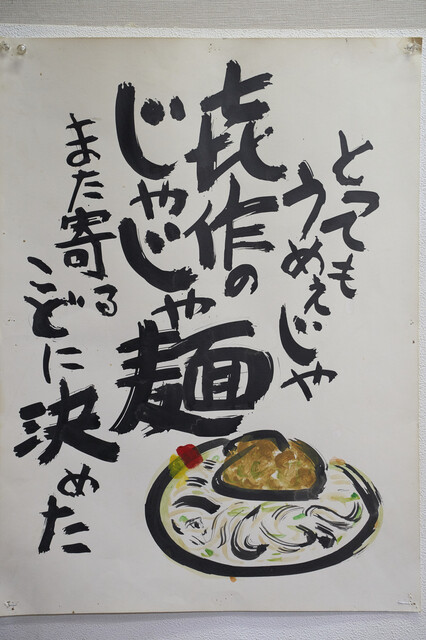 とっても
うめぇじゃ
㐂作の
じゃじゃ麺
また寄る
こどに決めた